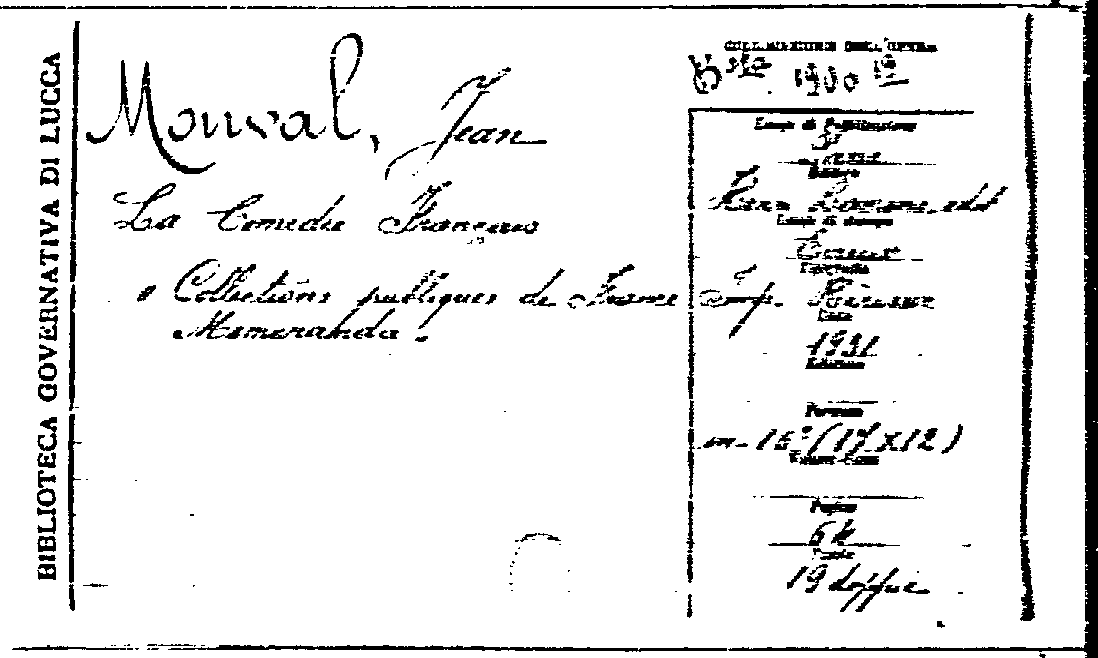 BIBLIOTECA GOVERNATIVA DI LUCCA
Monval, Jean
La Comedie Française
Collections publiques de France
Memoranda.
COLLOCAZIONE DELL'OPERA
1900
Luogo di Pubblicazione
Editore
Luogo di stampa
Tipografia
Imp.
Data
1931
Edizione
Formato
in-16° (17 x 12)
Pagine
64
Tavole
19 doppie